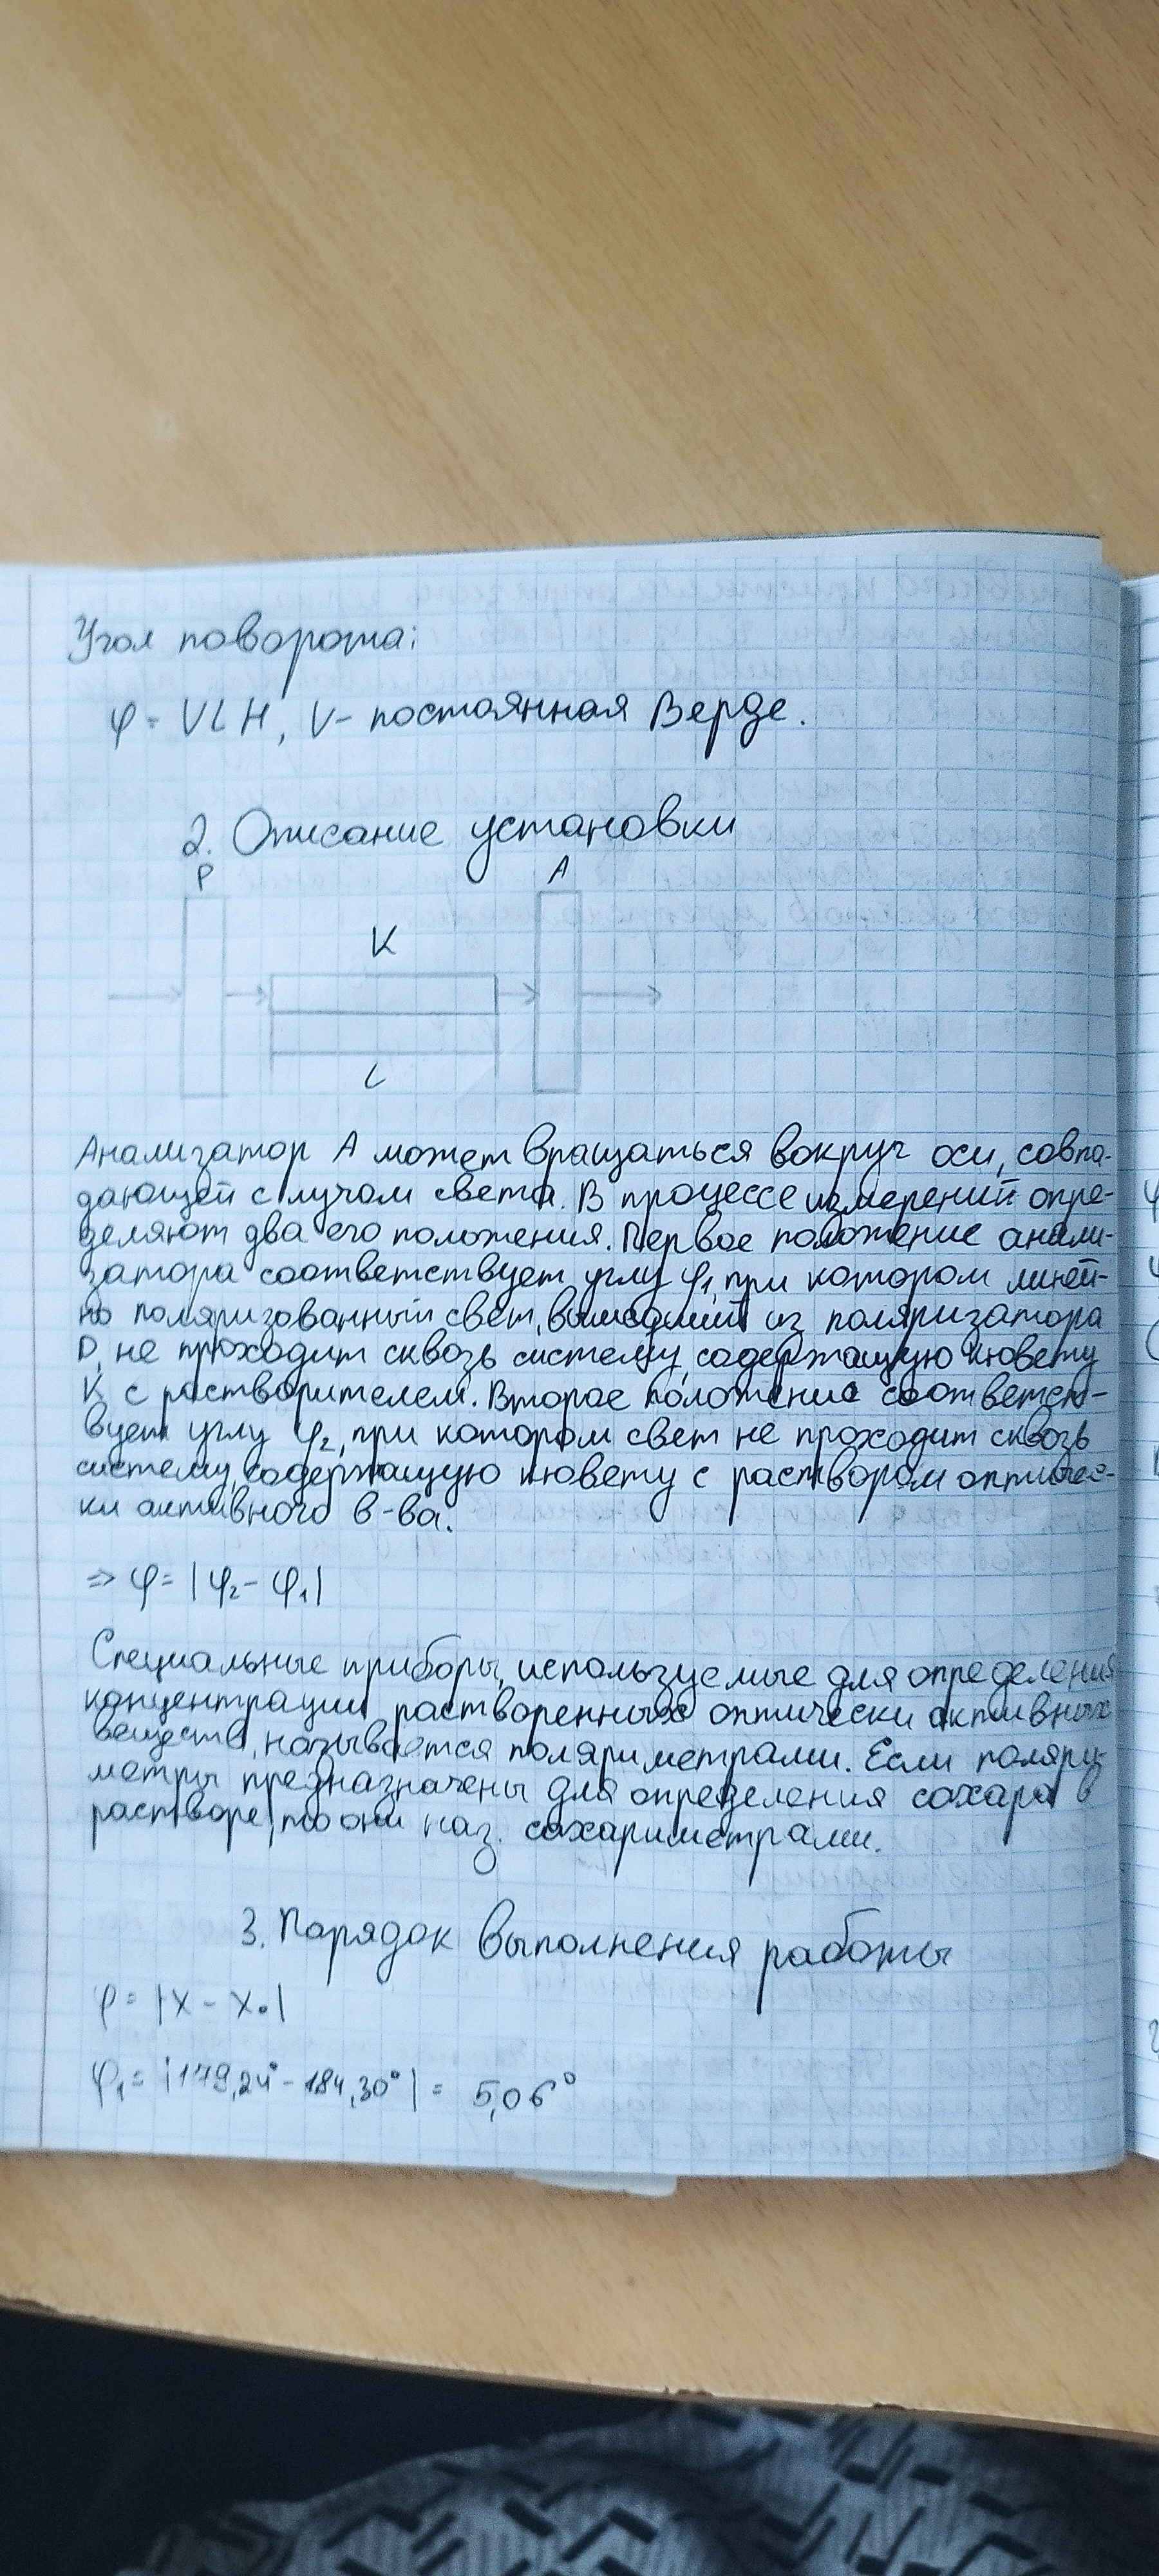 Угол поворота:
φ = VLH, V- постоянная Верде.
2. Описание установки
P
A
K
L
Анализатор А может вращаться вокруг оси, совпа-
дающей с лучом света. В процессе измерений опре-
деляют два его положения. Первое положение анали-
затора соответствует углу φ₁, при котором линей-
но поляризованный свет, вышедший из поляризатора
не проходит сквозь систему, содержащую кювету
K с растворителем. Второе положение соответст-
вует углу φ₂, при котором свет не проходит сквозь
систему, содержащую кювету с раствором оптичес-
ки активного в-ва.
=> φ = |φ₂ - φ₁|
Специальные приборы, используемые для определения
концентрации растворенных оптически активных
веществ, называется поляриметрами. Если поляри-
метры предназначены для определения сахара в
растворе, то они наз. сахариметрами.
3. Порядок выполнения работы
φ = |x - x₀|
φ₁ = |179,24° - 184,30°| = 5,06°